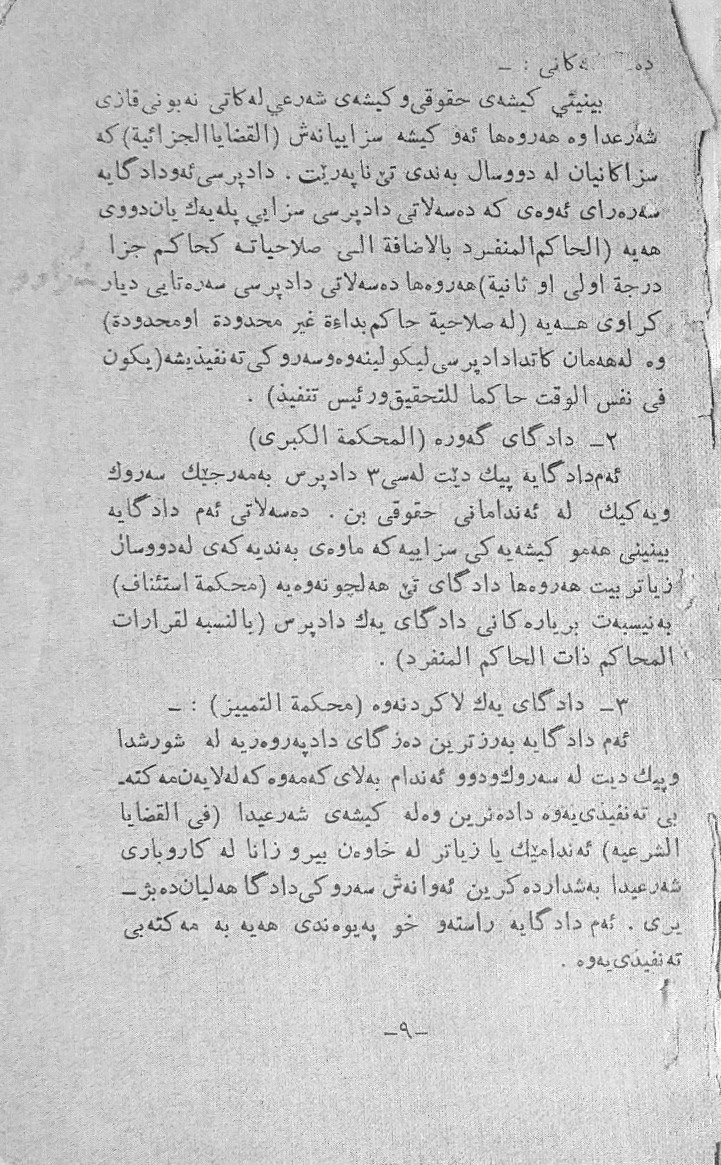 بینیئي کیشەی حقوقی و کیشەی شەرعي لەکاتی نەبونی قازی
شەرعدا وە هەروەها ئەو کیشە سزاییانەش (القضایا الجزائیة) که
سزاکانیان لە دووسال بەندی تێ ناپەرێت . دادپرسی ئەودادگایە
سەرەرای ئەوەی که دەسەلاتی دادپرسی سزایي پلەیەك یان‌دووی
هەیە (الحاکم المنفرد بالاضافة الی صلاحیاته کحاکم جزا
درجة اولی او ثانیة) هەروەها دەسەلاتی دادپرسی سەرەتایی دیار
کراوی هــەیە (له صلاحیة حاکم بداءة غیر محدودة اومحدودة)
وە لەهەمان کاتدا دادپرسی لیکولینەوە وسەروکی تەنفیذیشە (یکون
فی نفس الوقت حاکما للتحقیق ورئیس تنفیذ) .
٢ـ دادگای گەورە (المحکمة الکبری)
ئەم‌دادگایە پیك دێت لەسی ٣ دادپرس بەمەرجێك سەروك
ویەکیك لە ئەندامانی حقوقی بن . دەسەلاتی ئەم دادگایە
بینینی هەمو کیشەیەکی سزاییەکە ماوەی بەندیەکەی لەدووساڵ
زیاتر بیت هەروەها دادگای تێ هەلچونەوەیە (محکمة استئناف)
بەنیسبەت بریارەکانی دادگای یەك دادپرس (بالنسبه لقرارات
المحاکم ذات الحاکم المنفرد) .
٣ـ دادگای یەك لاکردنەوە (محکمة التمییز) : ـ
ئەم دادگایە بەرزترین دەزگای دادپەروەریە لە شورشدا
وپیك دیت لە سەروك ودوو ئەندام بەلای کەمەوە کەلەلایەن مەکتەـ
بی تەنفیذی‌یەوە دادەنرین وەلە کیشەی شەرعیدا (فی القضایا
الشرعیه) ئەندامێك یا زیاتر لە خاوەن بیرو زانا لە کاروباری
شەرعیدا بەشداردەکرین ئەوانەش سەروکی دادگا هەلیان‌دەبژـ
یری . ئەم دادگایە راستەو خو پەیوەندی هەیە بە مەکتەبی
تەنفیذی‌یەوە .
ـ٩ـ